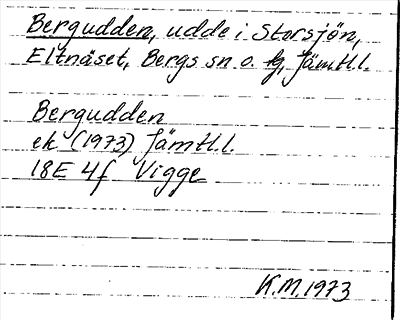 Bergudden, udde i Storsjön,
Eltnäset, Bergs sn o. tg, Jämtl.l.
Bergudden
ek (1973) Jämtl.l.
18E 4f Vigge
K.M. 1973